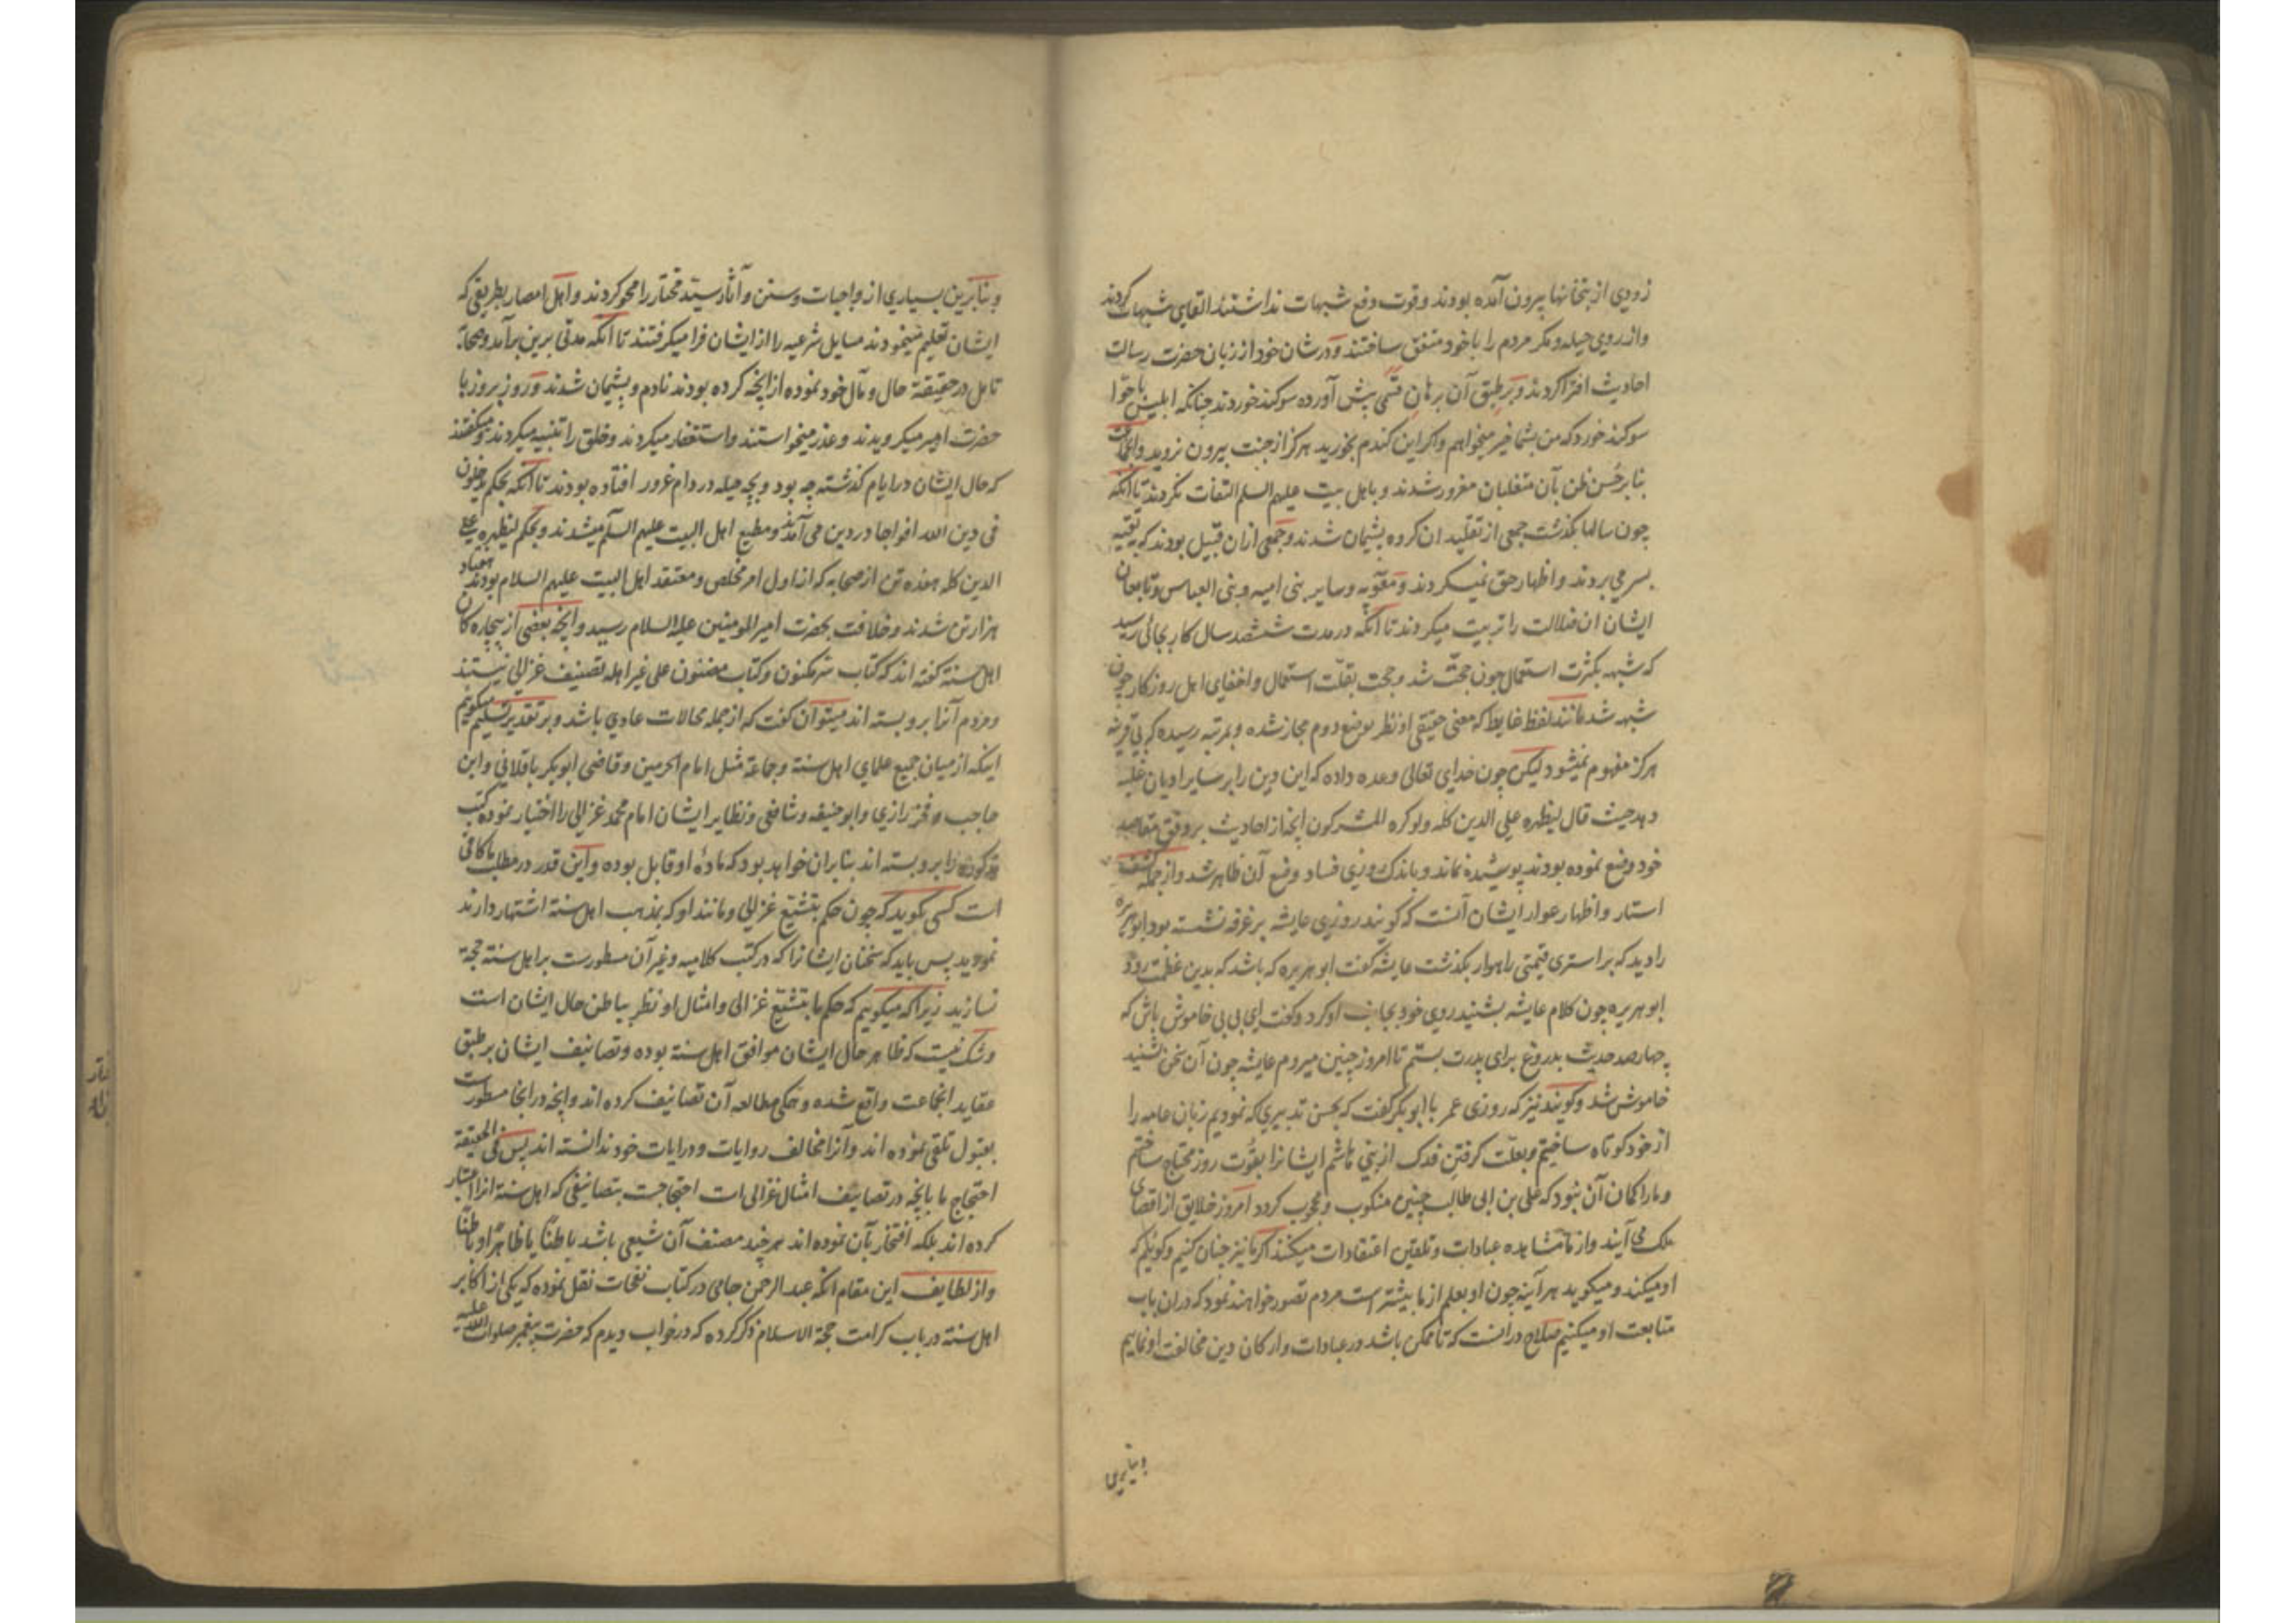 زودی از بتخانها بیرون آمده بودند وقوت دفع شبهات نداشتند القای شبهات کردند
واز روی حیله ومکر مردم را با خود متفق ساختند ودر شان خود از زبان حضرت رسالت
احادیث افترا کردند وبر طبق آن برهان قسمی پیش آورده سوکند خوردند چنانکه ابلیس با حوّا
سوکند خورد که من بشما خیر میخواهم واکر این کندم بخورید هرکز از جنت بیرون نروید وانجماعت
بنابر حُسن ظن بآن متغلبان مغرور شدند وباهل بیت علیهم السلم التفات نکردند تا آنکه
چون سالها بکذشت جمعی از تقلید ان کروه پشیمان شدند وجمعی ازان قبیل بودند که بتقیه
بسر می بردند واظهار حق نمیکردند ومعویه وسایر بنی امیه وبنی العباس وتابعان
ایشان ان ضلالت را تربیت میکردند تا آنکه در مدت ششصد سال کار بجائی رسید
که شبهه بکثرت استعمال چون حجت شد وحجت بقلّت استعمال واخفای اهل روزکار چون
شبهه شد مانند لفظ غایط که معنی حقیقی او نظر بوضع دوم مجاز شده وبمرتبه رسیده که بی قرینه
هرکز مفهوم نمیشود لیکن چون خدای تعالی وعده داده که این دین را بر سایر ادیان غلبه
دهد حیث قال لیظهره علی الدین کله ولو کره المشرکون انچه از احادیث بر وفق مقاصد
خود وضع نموده بودند پوشیده نماند وباندک روزی فساد وضع آن ظاهر شد واز جمله کشف
استار واظهار عوار ایشان آنست که کویند روزی عایشه بر غرفه نشسته بود ابو هریره
را دید که بر استری قیمتی راهوار بکذشت عایشه کفت ابو هریره که باشد که بدین عظمت رود
ابو هریره چون کلام عایشه بشنید روی خود بجانب او کرد وکفت ای بی بی خاموش باش که
چهارصد حدیث بدروغ برای پدرت بستم تا امروز چنین میروم عایشه چون آن سخن شنید
خاموش شد وکویند نیز که روزی عمر با ابو بکر کفت که بحسن تدبیری که نمودیم زبان عامه را
از خود کوتاه ساختیم وبعلّت کرفتن فدک از بنی هاشم ایشانرا بقُوت روز محتاج ساختیم
ومارا کمان آن نبود که علی بن ابی طالب چنین منکوب ومحجوب کردد امروز خلایق از اقصای
ملک می آیند واز ما مشاهده عبادات وتلقین اعتقادات میکنند اکر ما نیز چنان کنیم وکوئیم که
او میکند ومیکوید هر آینه چون او بعلم از ما بیشتر است مردم تصور خواهند نمود که دران باب
متابعت او میکنیم صلاح درانست که تا ممکن باشد در عبادات وارکان دین مخالفت او نماییم
وبنابرین
وبنابرین بسیاری از واجبات وسنن وآثار سیّد مختار را محو کردند واهل امصار بطریقی که
ایشان تعلیم مینمودند مسایل شرعیه را از ایشان فرا میکرفتند تا آنکه مدتی برین برآمد وصحابه
تامل در حقیقة حال ومآل خود نموده از آنچه کرده بودند نادم وپشیمان شدند وروز بروز با
حضرت امیر میکرویدند وعذر میخواستند واستغفار میکردند وخلق را تنبیه میکردند ومیکفتند
که حال ایشان در ایام کذشته چه بود وبچه حیله در دام غرور افتاده بودند تا آنکه بحکم یدخلون
فی دین الله افواجا در دین می آمدند ومطیع اهل البیت علیهم السلم میشدند وبحکم لیظهره علی
الدین کله هفده تن از صحابه که از اول امر مخلص ومعتقد اهل البیت علیهم السلام بودند هفتاد
هزار تن شدند وخلافت بحضرت امیر المومنین علیه السلام رسید وانچه بعضی از بیچاره کان
اهل سنة کفته اند که کتاب سر مکنون وکتاب مضنون علی غیر اهله تصنیف غزالی نیستند
ومردم آنرا برو بسته اند میتوان کفت که از جمله محالات عادی باشد وبر تقدیر تسلیم میکوییم
اینکه از میان جمیع علمای اهل سنة وجماعة مثل امام الحرمین وقاضی ابوبکر باقلانی وابن
حاجب وفخر رازی وابو حنیفه وشافعی ونظایر ایشان امام محمد غزالی را اختیار نموده کتب
مذکوره را برو بسته اند بنابران خواهد بود که مادهٔ او قابل بوده واین قدر در مطلب ما کافی
است کسی نکوید که چون حکم بتشیّع غزالی ومانند او که بمذهب اهل سنة اشتهار دارند
نمودید پس باید که سخنان ایشانرا که در کتب کلامیه وغیر آن مسطورست بر اهل سنة حجة
نسازید زیرا که میکوییم که حکم ما بتشیّع غزالی وامثال او نظر بباطن حال ایشان است
وشک نیست که ظاهر حال ایشان موافق اهل سنة بوده وتصانیف ایشان بر طبق
عقاید انجماعت واقع شده وهمکی مطالعه آن تصانیف کرده اند وانچه در انجا مسطورست
بقبول تلقی نموده اند وآنرا مخالف روایات ودرایات خود ندانسته اند پس فی الحقیقة
احتجاج ما بانچه در تصانیف امثال غزالی است احتجاجست بتصانیفی که اهل سنة انرا اعتبار
کرده اند بلکه افتخار بآن نموده اند هرچند مصنف آن شیعی باشد باطنًا یا ظاهرًا وباطنًا
واز لطایف این مقام انکه عبد الرحمن جامی در کتاب نفحات نقل نموده که یکی از اکابر
اهل سنة در باب کرامت حجة الاسلام ذکر کرده که در خواب دیدم که حضرت پیغمبر صلوات الله علیه